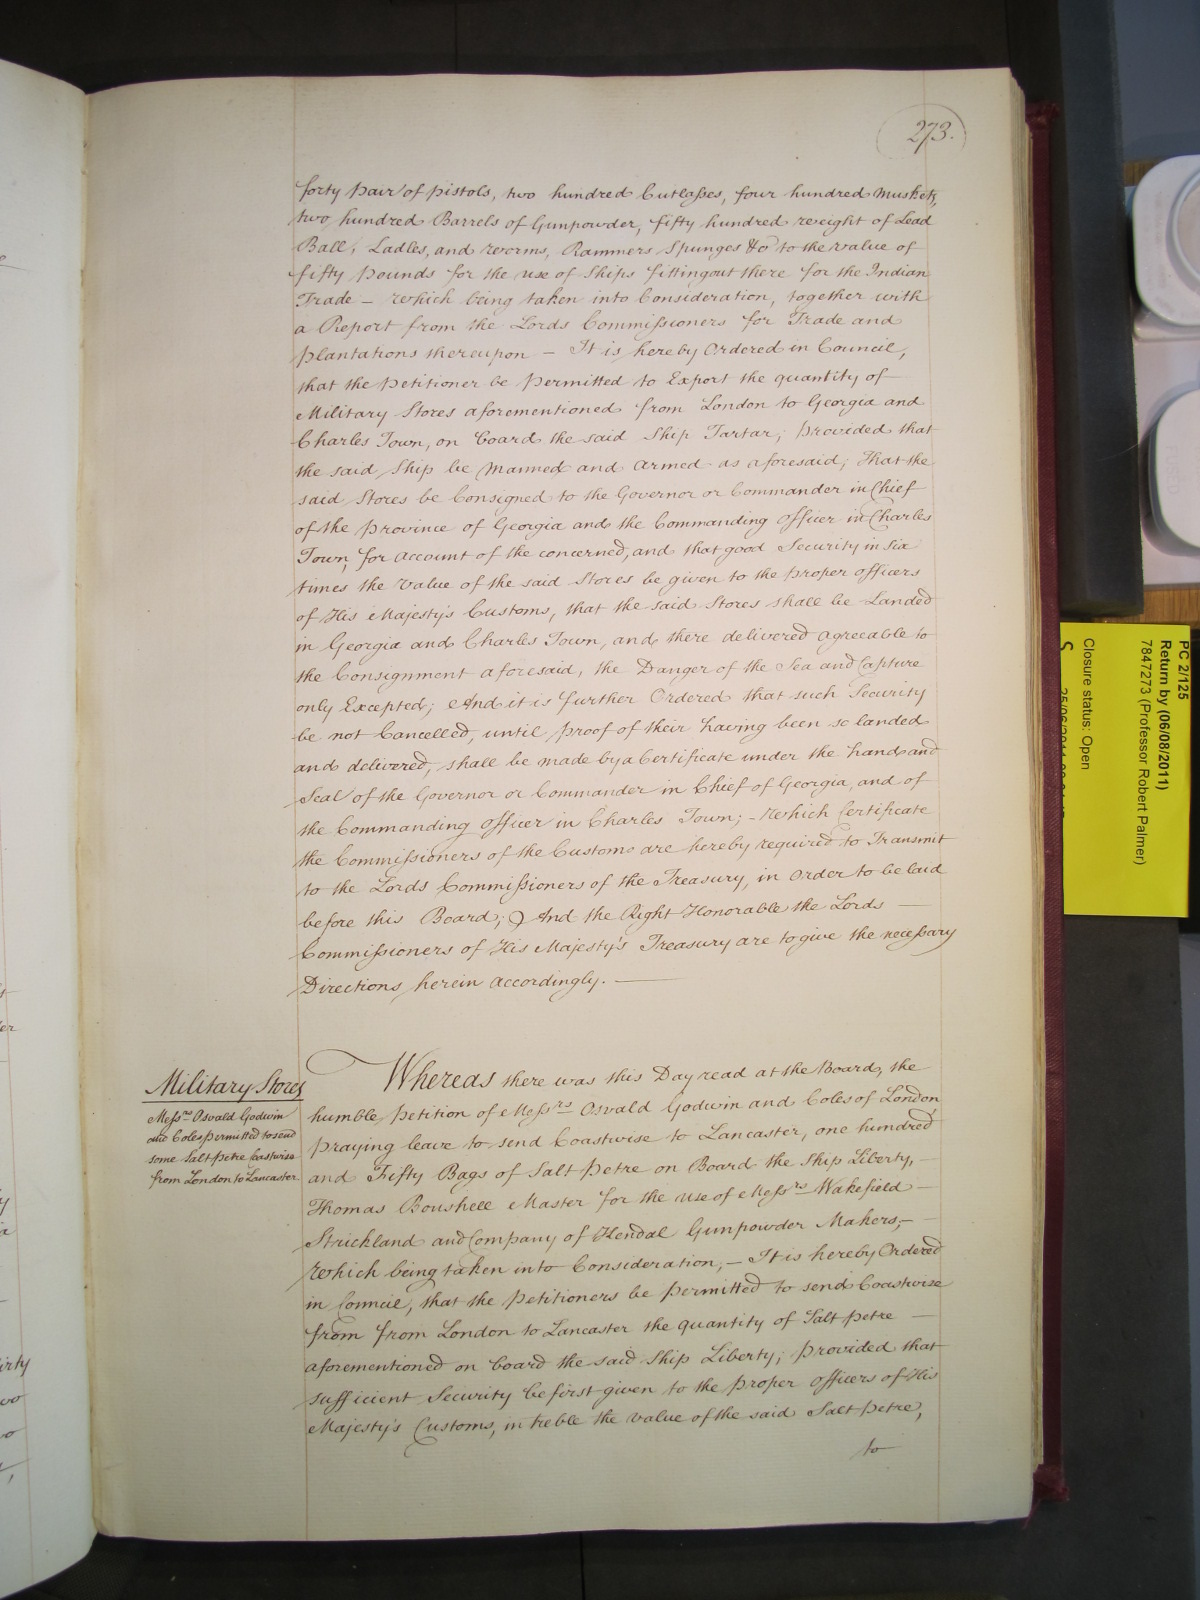 273.
forty Pair of Pistols, two hundred Cutlasses, four hundred Muskets,
two hundred Barrels of Gunpowder, fifty hundred weight of Lead
Ball, Ladles, and worms, Rammers Spunges &c to the value of
fifty Pounds for the use of Ships fitting out there for the Indian
Trade — Which being taken into Consideration, together with
a Report from the Lords Commissioners for Trade and
Plantations thereupon — It is hereby Ordered in Council,
that the Petitioner be Permitted to Export the quantity of —
Military Stores aforementioned from London to Georgia and
Charles Town, on board the said Ship Tartar; Provided that
the said Ship be Manned and Armed as aforesaid; That the
said Stores be Consigned to the Governor or Commander in Chief
of the Province of Georgia and the Commanding Officer in Charles
Town, for Account of the concerned, and that good Security in Six
times the Value of the said Stores be given to the proper officers
of His Majesty's Customs, that the said Stores shall be Landed
in Georgia and Charles Town, and there delivered agreeable to
the Consignment aforesaid, the Danger of the Sea and Capture
only Excepted; And it is further Ordered that such Security
be not Cancelled, until proof of their having been so landed
and delivered, shall be made by a Certificate under the hand and
Seal of the Governor or Commander in Chief of Georgia, and of
the Commanding Officer in Charles Town; — Which Certificate
the Commissioners of the Customs are hereby required to Transmit
to the Lords Commissioners of the Treasury, in order to be laid
before this Board; And the Right Honorable the Lords —
Commissioners of His Majesty's Treasury are to give the necessary
Directions herein accordingly. —
Military Stores
Messrs Osvald Godwin
and Coles permitted to send
some Salt Petre Coastwise
from London to Lancaster
Whereas there was this Day read at the Board, the
humble Petition of Messrs Osvald Godwin and Coles of London
praying leave to send Coastwise to Lancaster, one hundred
and Fifty Bags of Salt Petre on Board the Ship Liberty, —
Thomas Boushell Master for the use of Messrs Wakefield —
Strickland and Company of Kendal Gunpowder Makers, —
Which being taken into Consideration, — It is hereby Ordered
in Council, that the Petitioners be Permitted to send Coastwise
from from London to Lancaster the quantity of Salt Petre —
aforementioned on board the said Ship Liberty; provided that
sufficient Security be first given to the proper officers of His
Majesty's Customs, in treble the value of the said Salt Petre,
to
PC 2/125
Return by (06/08/2011)
7847273 (Professor Robert Palmer)
Closure status: Open
S